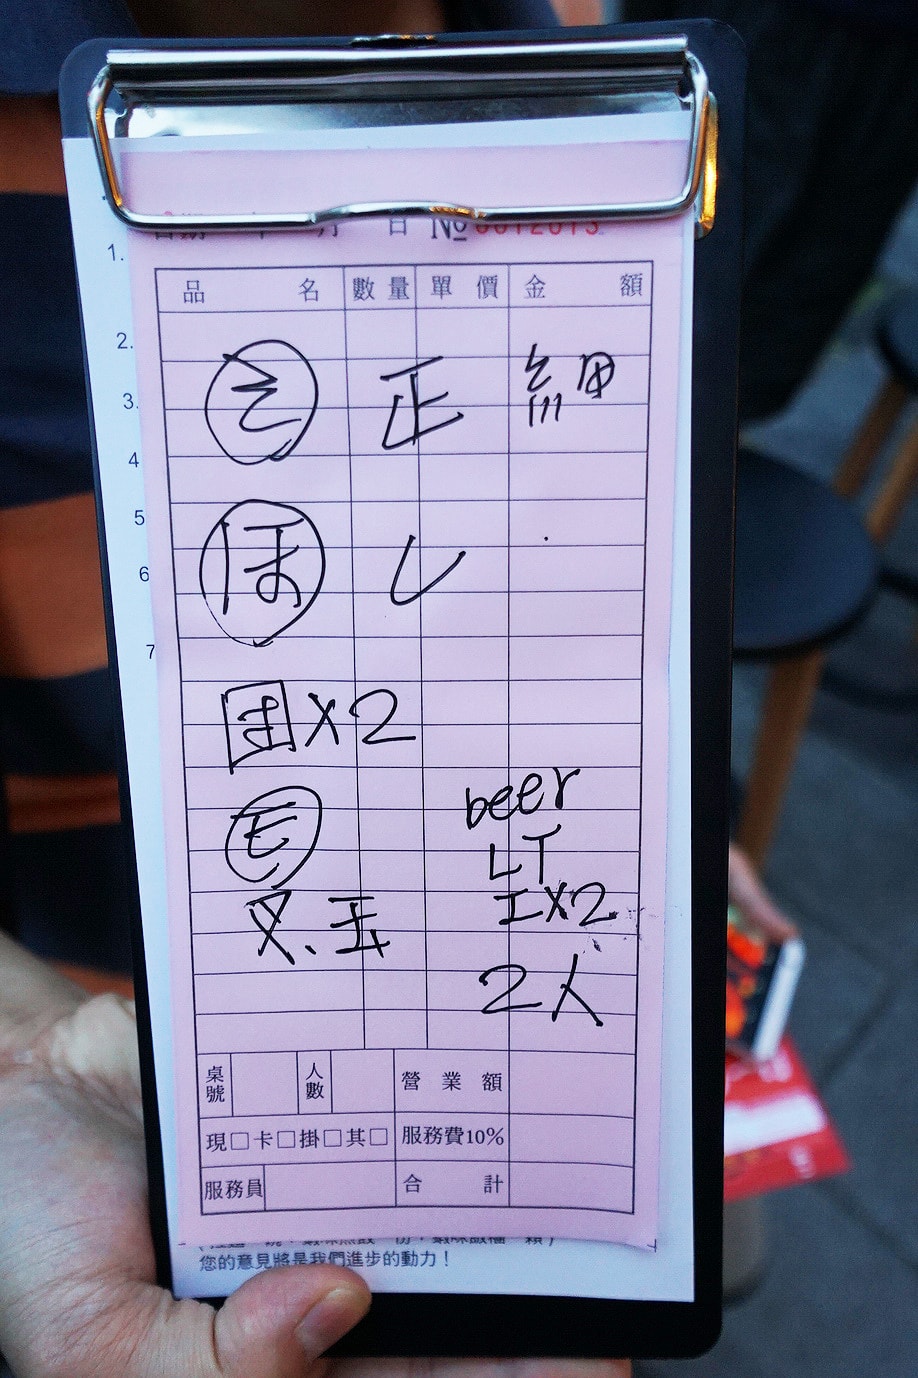 日期 年 月 日 № 0012013
1.
品名 數量 單價 金額
2.
3.
そ 正 細
4
5
ほ し
6
7
ま X2
モ beer
LT
叉、玉 エX2
2人
桌號 人數 營業額
現□卡□掛□其□ 服務費10%
服務員 合計
您的意見將是我們進步的動力！